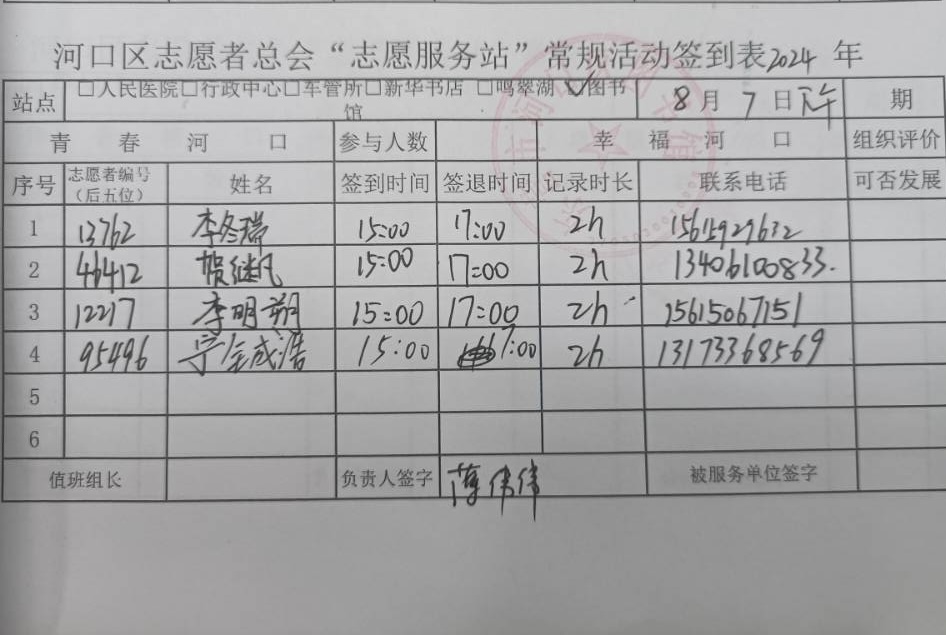 河口区志愿者总会“志愿服务站”常规活动签到表2024 年
站点 □人民医院□行政中心□车管所□新华书店 □鸣翠湖 ☑图书馆 8 月 7 日 下午 期
青 春 河 口 参与人数 幸 福 河 口 组织评价
序号 志愿者编号（后五位） 姓名 签到时间 签退时间 记录时长 联系电话 可否发展
1 13762 李冬瑞 15:00 17:00 2h 15615929632
2 46412 贺继凡 15:00 17:00 2h 13406100833.
3 12217 李明朔 15:00 17:00 2h 15615067151
4 95496 成浩 15:00 17:00 2h 13173368569
5
6
值班组长 负责人签字 薄伟伟 被服务单位签字